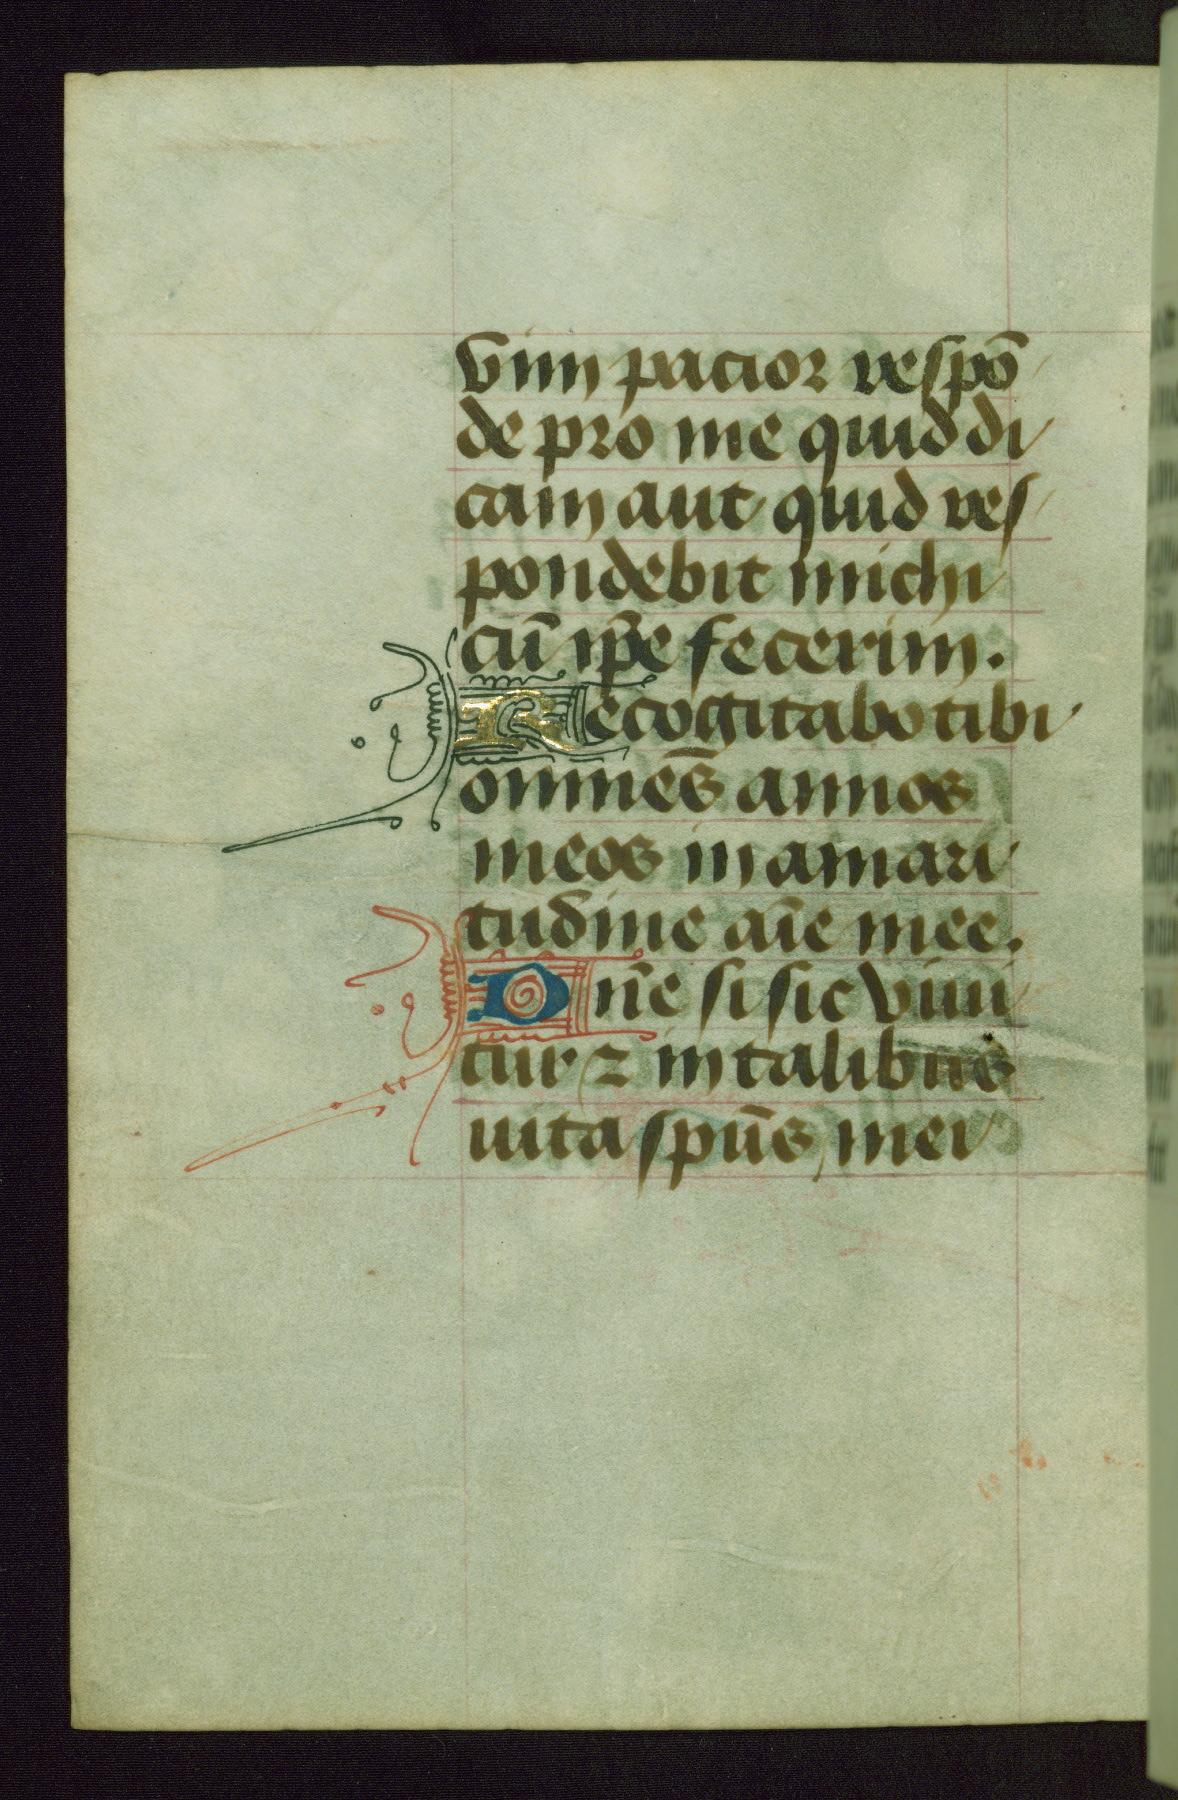 vim pacior respō
de pro me quid di
cam aut quid res
pondebit michi
cū ip̄e fecerim.
Recogitabo tibi
omnes annos
meos in amari
tudīne aīe mee.
Dn̄e si sic viui
tur ⁊ in talibus
uita spūs mei